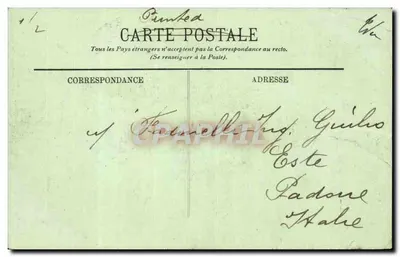 Printed
1/2
CARTE POSTALE
Tous les Pays étrangers n'acceptent pas la Correspondance au recto.
(Se renseigner à la Poste).
CORRESPONDANCE
ADRESSE
Ing. Giulio
Este
Padove
Italie
CPAPHIL